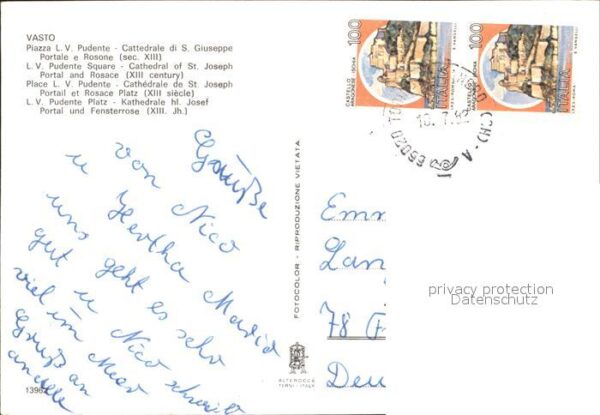 VASTO
Piazza L. V. Pudente - Cattedrale di S. Giuseppe
Portale e Rosone (sec. XIII)
L. V. Pudente Square - Cathedral of St. Joseph
Portal and Rosace (XIII century)
Place L. V. Pudente - Cathédrale de St. Joseph
Portail et Rosace Platz (XIII siècle)
L. V. Pudente Platz - Kathedrale hl. Josef
Portal und Fensterrose (XIII. Jh.)
Grüße
von Nico
u Hertha Maria
uns geht es sehr
gut u Nico
viel im Meer
Gruß an
alle
1396
FOTOCOLOR - RIPRODUZIONE VIETATA
ALTEROCCA
TERNI - ITALY
100
CASTELLO
ARAGONESE - ISCHIA
ITALIA
100
ITALIA
66020
(CH) - A
Emm
Lan
78 (F
Deu
privacy protection
Datenschutz